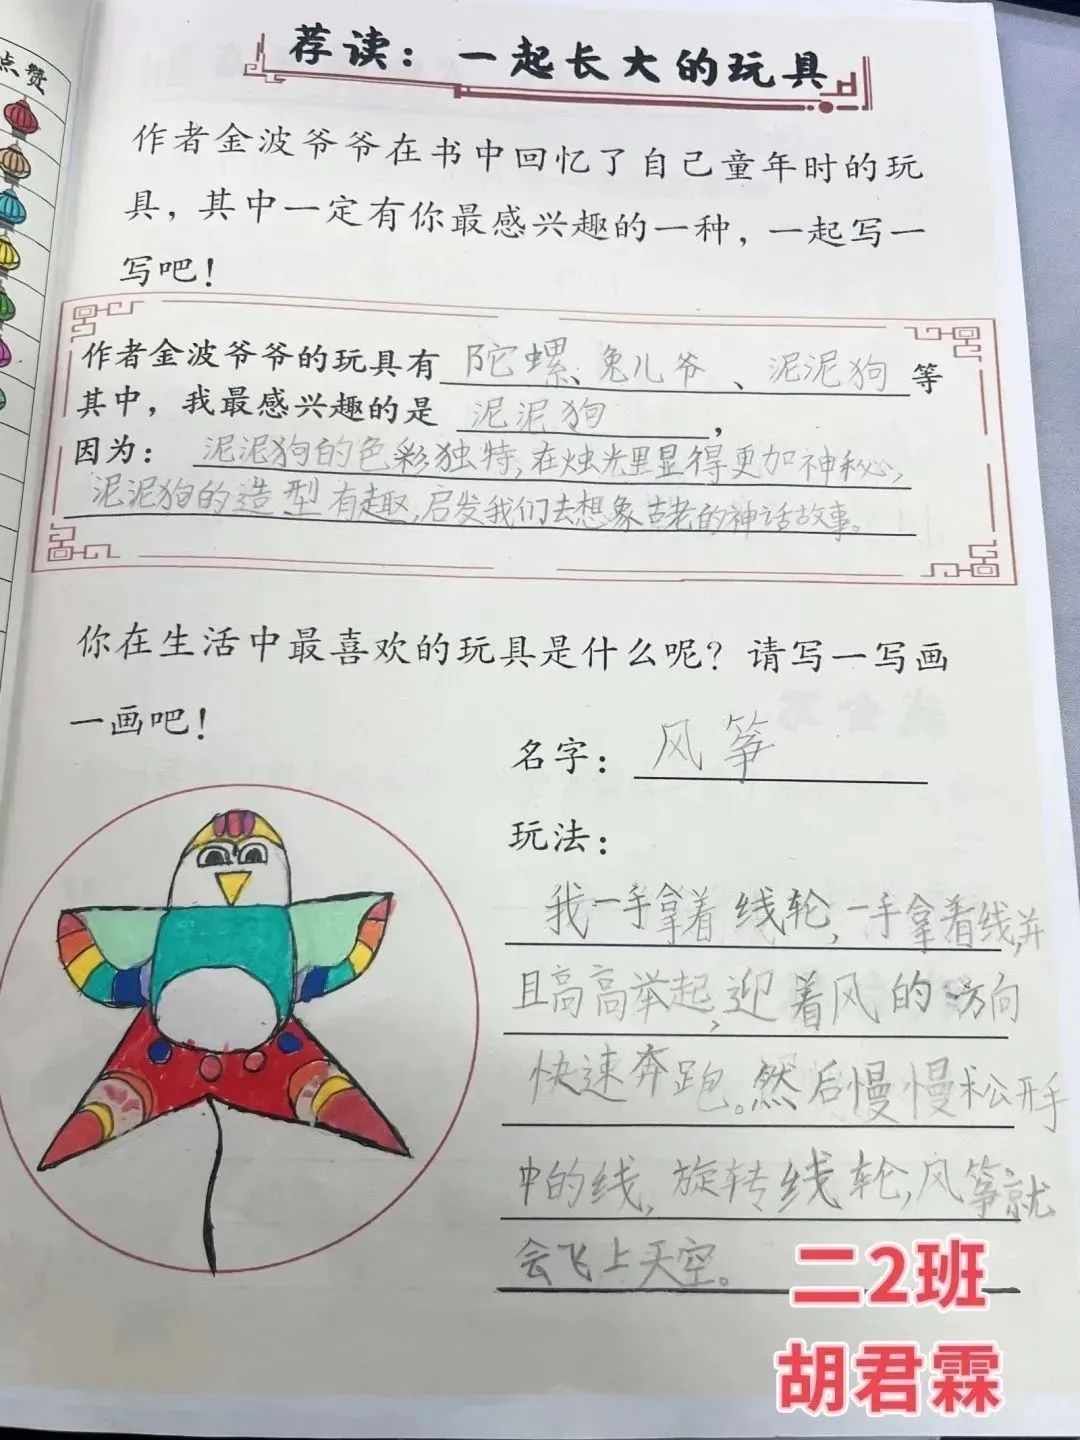 点赞
荐读：一起长大的玩具
作者金波爷爷在书中回忆了自己童年时的玩
具，其中一定有你最感兴趣的一种，一起写一
写吧！
作者金波爷爷的玩具有 陀螺、兔儿爷、泥泥狗 等
其中，我最感兴趣的是 泥泥狗，
因为：泥泥狗的色彩独特，在烛光里显得更加神秘，
泥泥狗的造型有趣，启发我们去想象古老的神话故事。
你在生活中最喜欢的玩具是什么呢？请写一写画
一画吧！
名字：风筝
玩法：
我一手拿着线轮，一手拿着线，并
且高高举起，迎着风的方向
快速奔跑。然后慢慢松开手
中的线，旋转线轮，风筝就
会飞上天空。
二2班
胡君霖